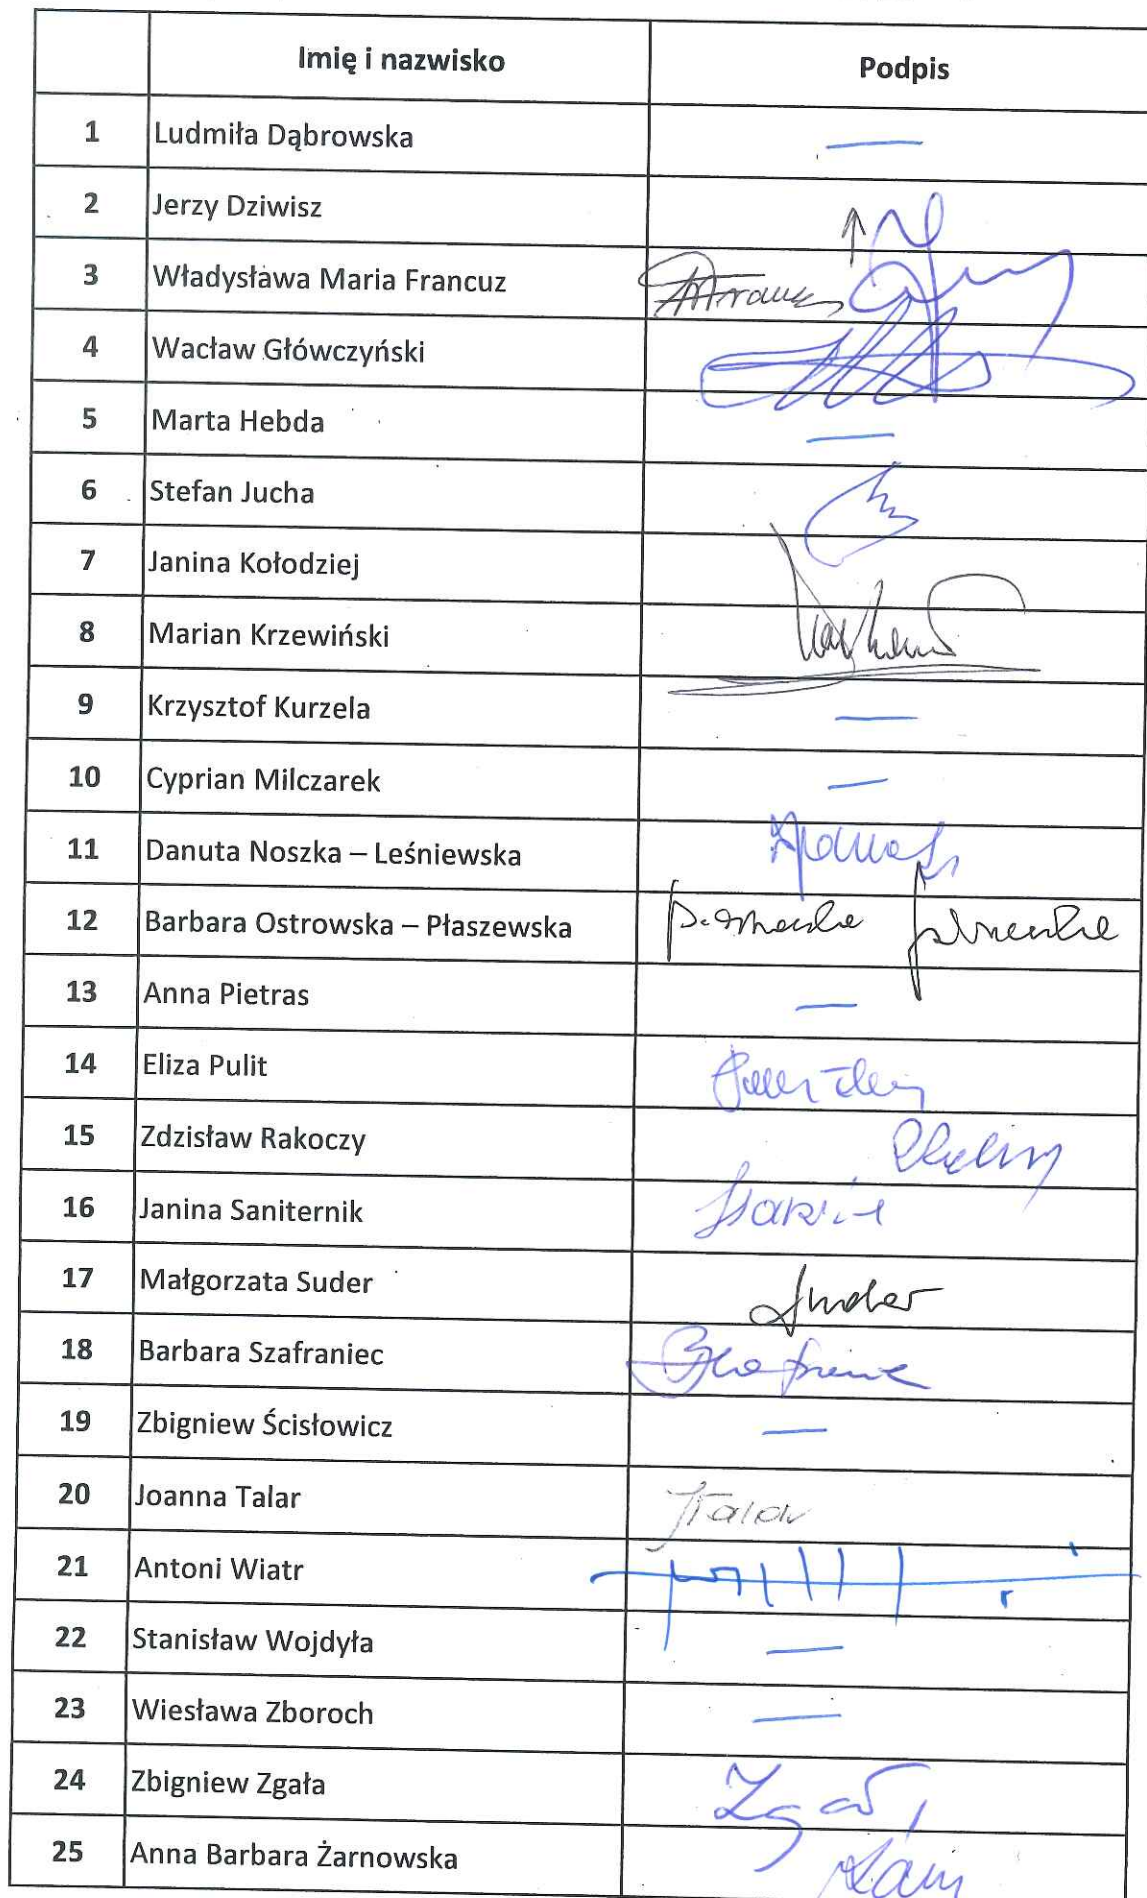 Imię i nazwisko Podpis
1 Ludmiła Dąbrowska —
2 Jerzy Dziwisz
3 Władysława Maria Francuz
4 Wacław Główczyński
5 Marta Hebda —
6 Stefan Jucha
7 Janina Kołodziej
8 Marian Krzewiński
9 Krzysztof Kurzela —
10 Cyprian Milczarek —
11 Danuta Noszka – Leśniewska
12 Barbara Ostrowska – Płaszewska
13 Anna Pietras —
14 Eliza Pulit
15 Zdzisław Rakoczy
16 Janina Saniternik
17 Małgorzata Suder Suder
18 Barbara Szafraniec
19 Zbigniew Ścisłowicz —
20 Joanna Talar JTalar
21 Antoni Wiatr
22 Stanisław Wojdyła —
23 Wiesława Zboroch —
24 Zbigniew Zgała
25 Anna Barbara Żarnowska